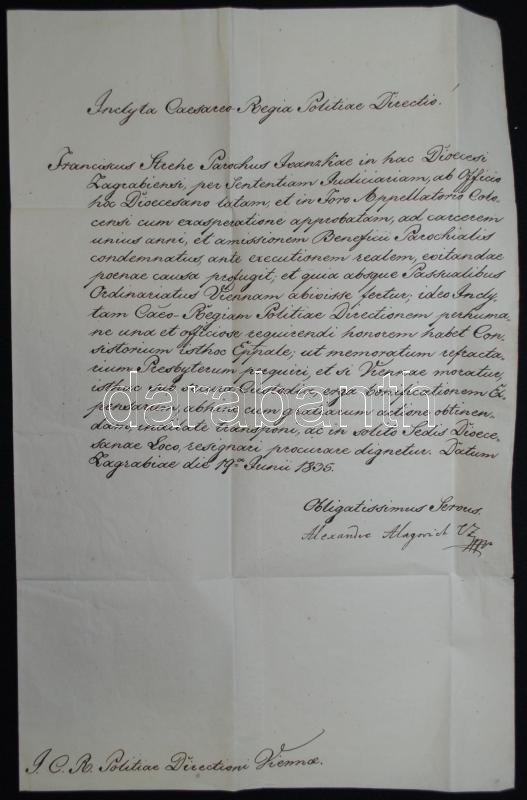 Inclyta Caesareo Regia Politiae Directio!
Franciscus Strehe Parochus Ivanzkae in hac Dioecesi
Zagrabiensi, per Sententiam Judiciariam, ab Officio
hoc Dioecesano latam, et in Foro Appellatorio Colo-
censi cum exasperatione approbatam, ad carcerem
unius anni, et amissionem Beneficii Parochialis
condemnatus, ante executionem realem, evitandae
poenae causa profugit; et quia absque Passualibus
Ordinariatus Viennam abivisse fertur; ideo Incly-
tam Caeo-Regiam Politiae Directionem perhuma-
ne una et officiose requirendi honorem habet Con-
sistorium isthoc Eppale; ut memoratum refracta-
rium Presbyterum perquiri, et si Viennae moratur,
isthuc sub secura Custodia, erga bonificationem Ex-
pensarum, abhinc cum gratiarum actione obtinen-
dam indicate transponi, ac in solito Sedis Dioece-
sanae Loco, resignari procurare dignetur. Datum
Zagrabiae die 19a Junii 1835.
Obligatissimus Servus.
Alexander Alagovich
I. C. R. Politiae Directioni Viennae.
darabanth